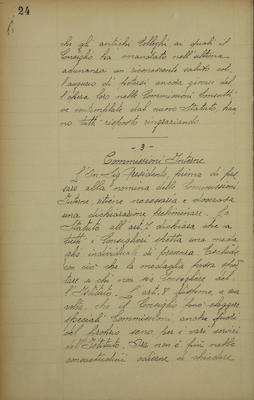 24
che gli antichi Colleghi ai quali il
Consiglio ha mandato nell'ultima
adunanza un riconoscente saluto col
l'augurio di potersi ancora giovare del
l'opera loro nelle Commissioni Consulti
ve contemplate dal nuovo Statuto, han
no tutti risposto ringraziando.
- 3 -
Commissioni Interne
L'On. Sig. Presidente, prima di pas
sare alla nomina delle Commissioni
Interne, ritiene necessaria e doverosa
una dichiarazione preliminare. Lo
Statuto all'art. 7 dichiara che a
tutti i Consiglieri spetta una meda
glia individuale di presenza. Esclude
con ciò che la medaglia possa spet
tare a chi non sia Consigliere del
l'Istituto. L'art. 8 dispone, a sua
volta, che il Consiglio può eleggere
speciali Commissioni anche fuori
del proprio seno per i vari servizi
dell'Istituto. Ora non è più nelle
consuetudini odierne di chiedere